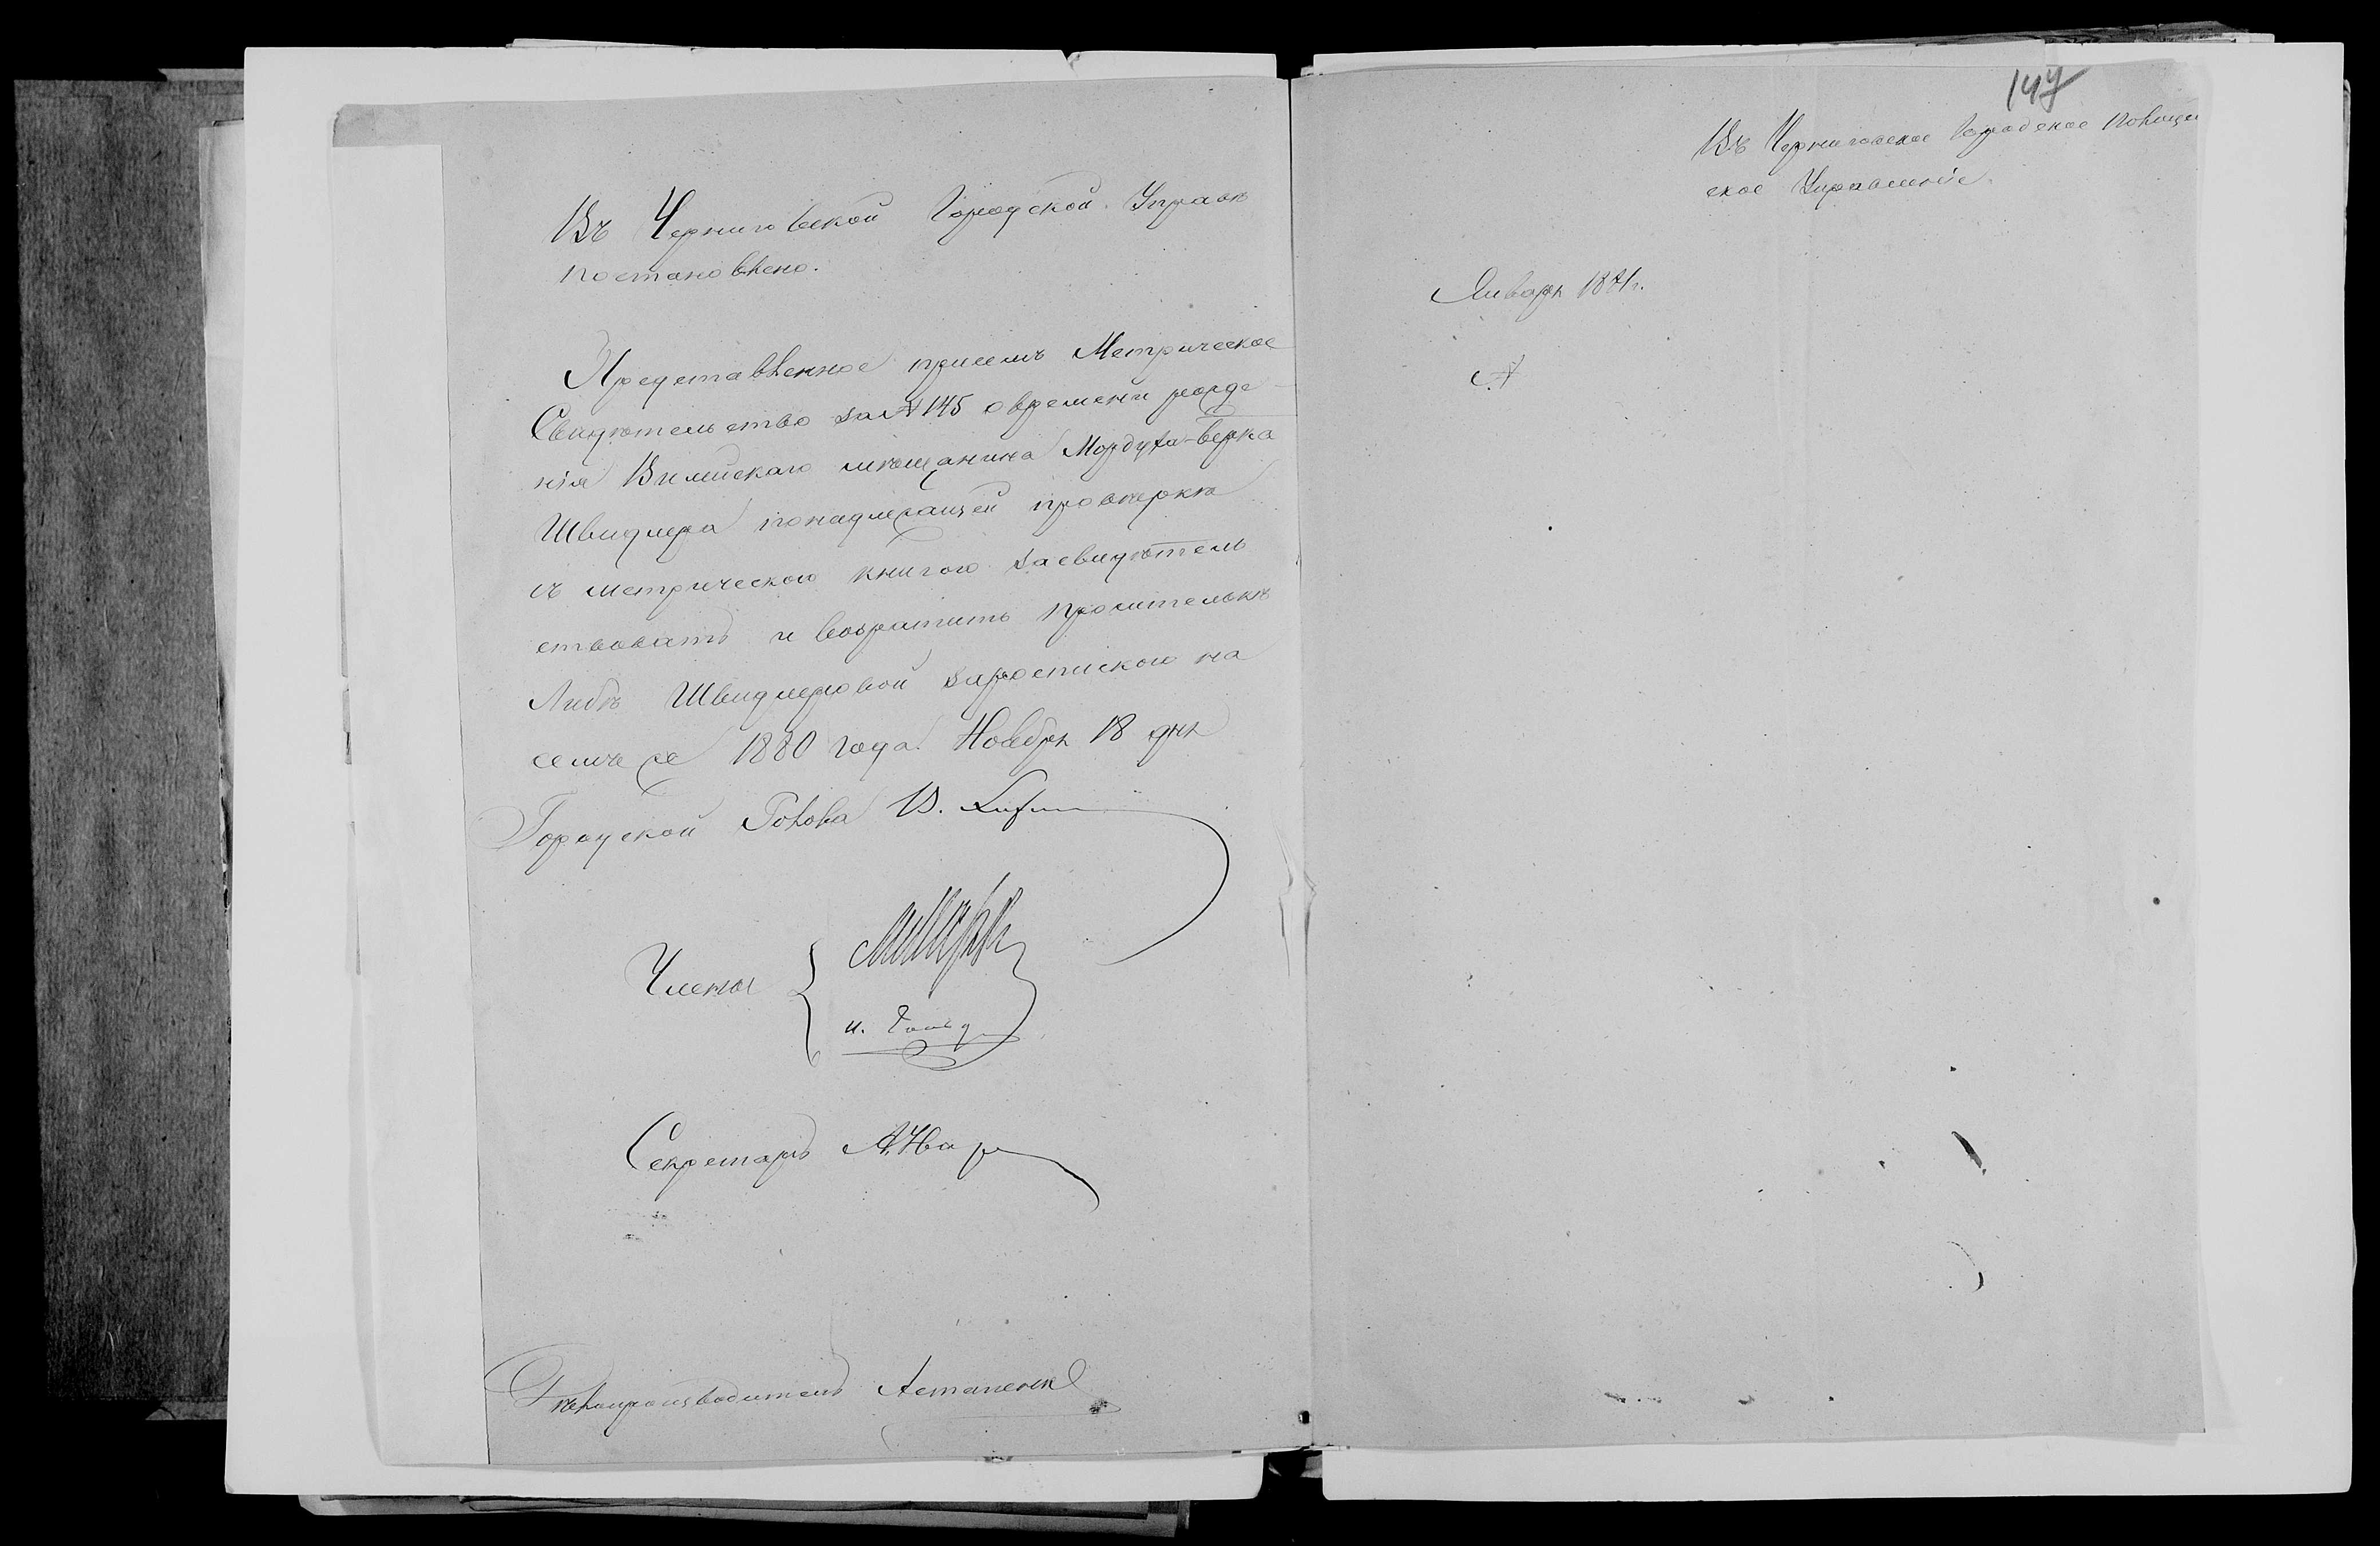 Въ Черниговской Городской Управѣ
постановлено.
Представленное присемъ Метрическое
Свидѣтельство за № 145 о времени рожде-
нія Виленскаго мѣщанина Мордуха-Берка
Швидлера понадлежащей провѣркѣ
съ метрическою книгою засвидѣтель
ствовать и возратить просителькѣ
Либѣ Швидлеровой зароспискою на
семъ же 1880 года. Ноября 18 дня
Городской Голова В.
Члены
и.
Секретарь А.
Дѣлопроизводитель
147
Въ Черниговское Городское Полицей
ское Управленіе.
Января 1881 г.
№